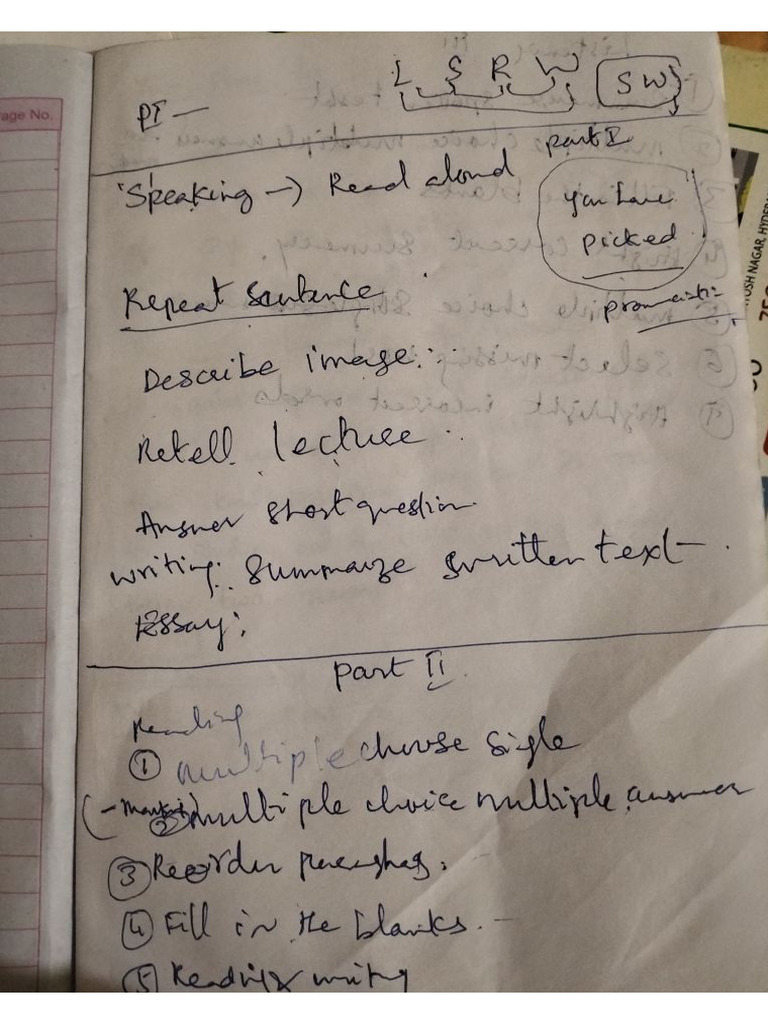 age No.
L S R W SW
PI —
Part I
Speaking → Read aloud
you have
picked
Repeat sentence
Describe image:
Retell lecture
Answer short question
writing: Summarize written text
Essay:
Part II
Reading
① multiple choose single
② multiple choice multiple answer
③ Reorder
④ Fill in the blanks.
⑤ Reading writing